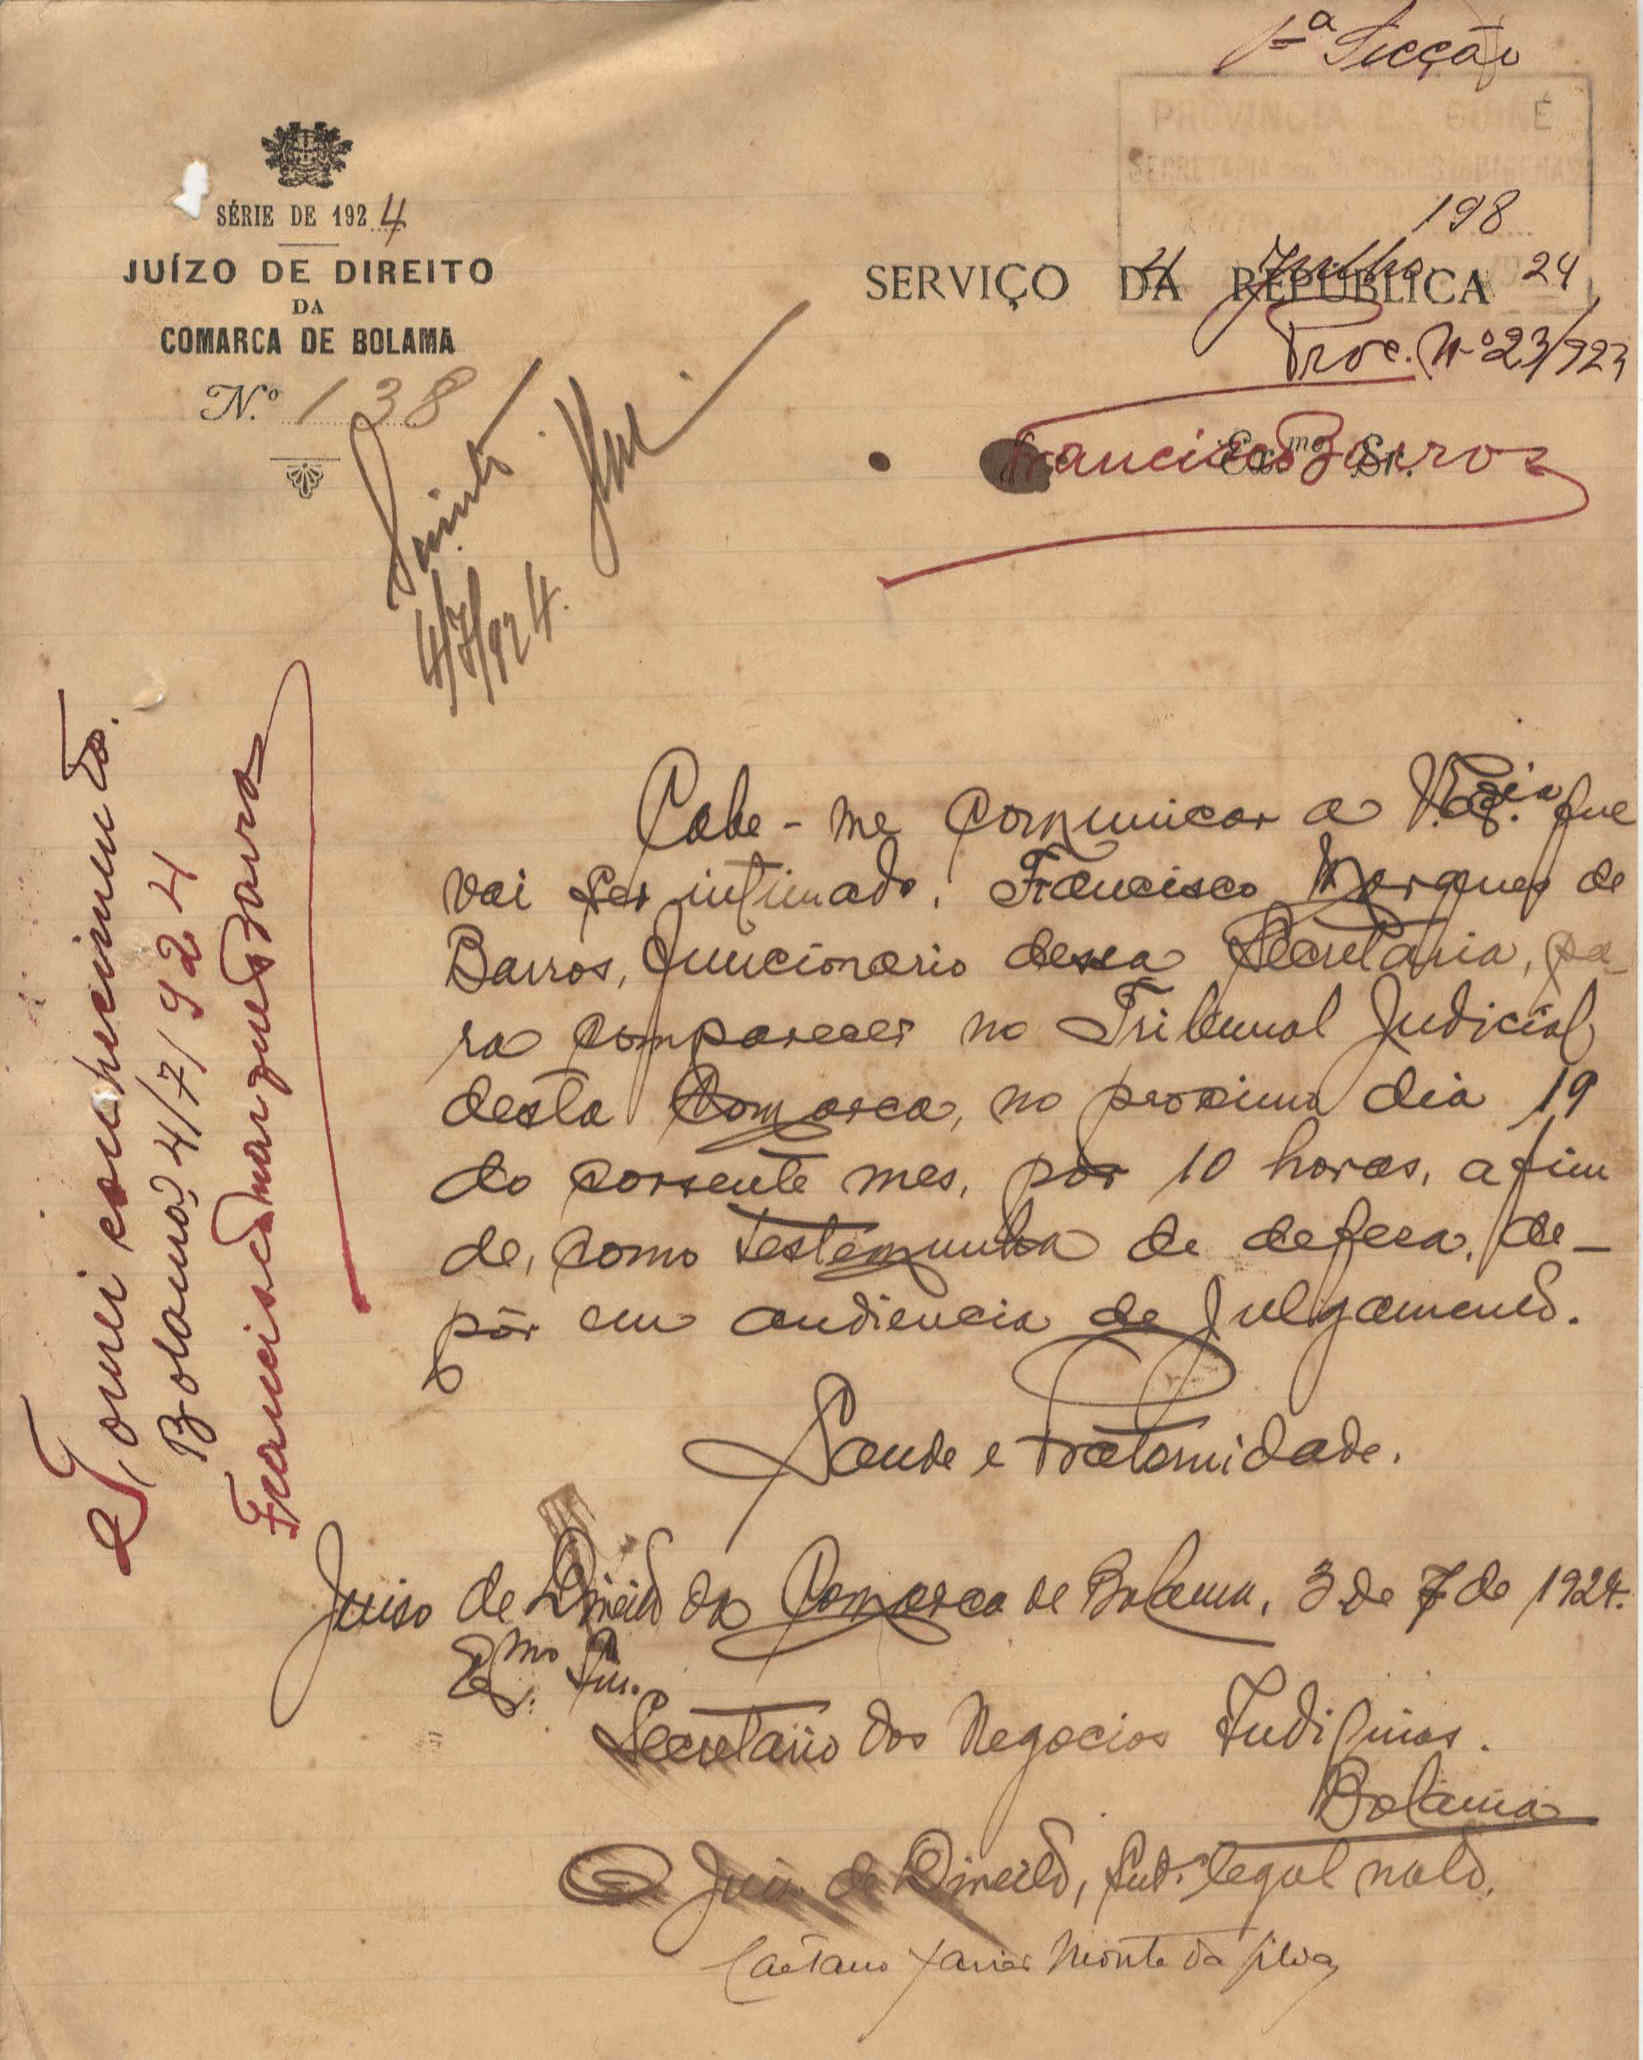 1ª Secção
PROVINCIA DA GUINÉ
SÉRIE DE 1924
198
JUÍZO DE DIREITO
DA
COMARCA DE BOLAMA
SERVIÇO DA REPÚBLICA
4 Julho 24
Proc. Nº 23/923
N.º 138
Francisco Barros
Exmo Sr.
4/7/924.
Tomei conhecimento.
Bolama 4/7/924
Francisco Marques Barros
Cabe-me comunicar a V. Exª. que
vai ser intimado, Francisco Marques de
Barros, funcionario dessa Secretaria, pa-
ra comparecer no Tribunal Judicial
desta Comarca, no proximo dia 19
do corrente mes, por 10 horas, a fim
de, como testemunha de defesa, de-
pôr em audiencia de julgamento.
Saude e Fraternidade.
Juiso de Direito da Comarca de Bolama, 3 de 7 de 1924.
Exmo Snr.
Secretario dos Negocios Indigenas.
Bolama
O Juiz de Direito, Subº legal nato,
Caetano Xavier Monte da Silva